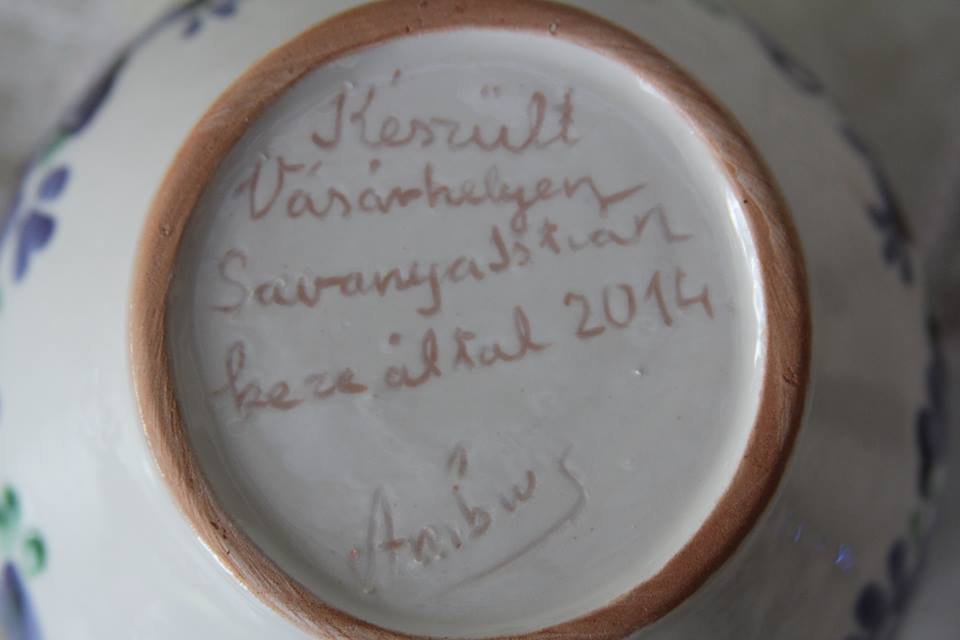 Készült
Vásárhelyen
Savanya István
keze által 2014
Ambrus